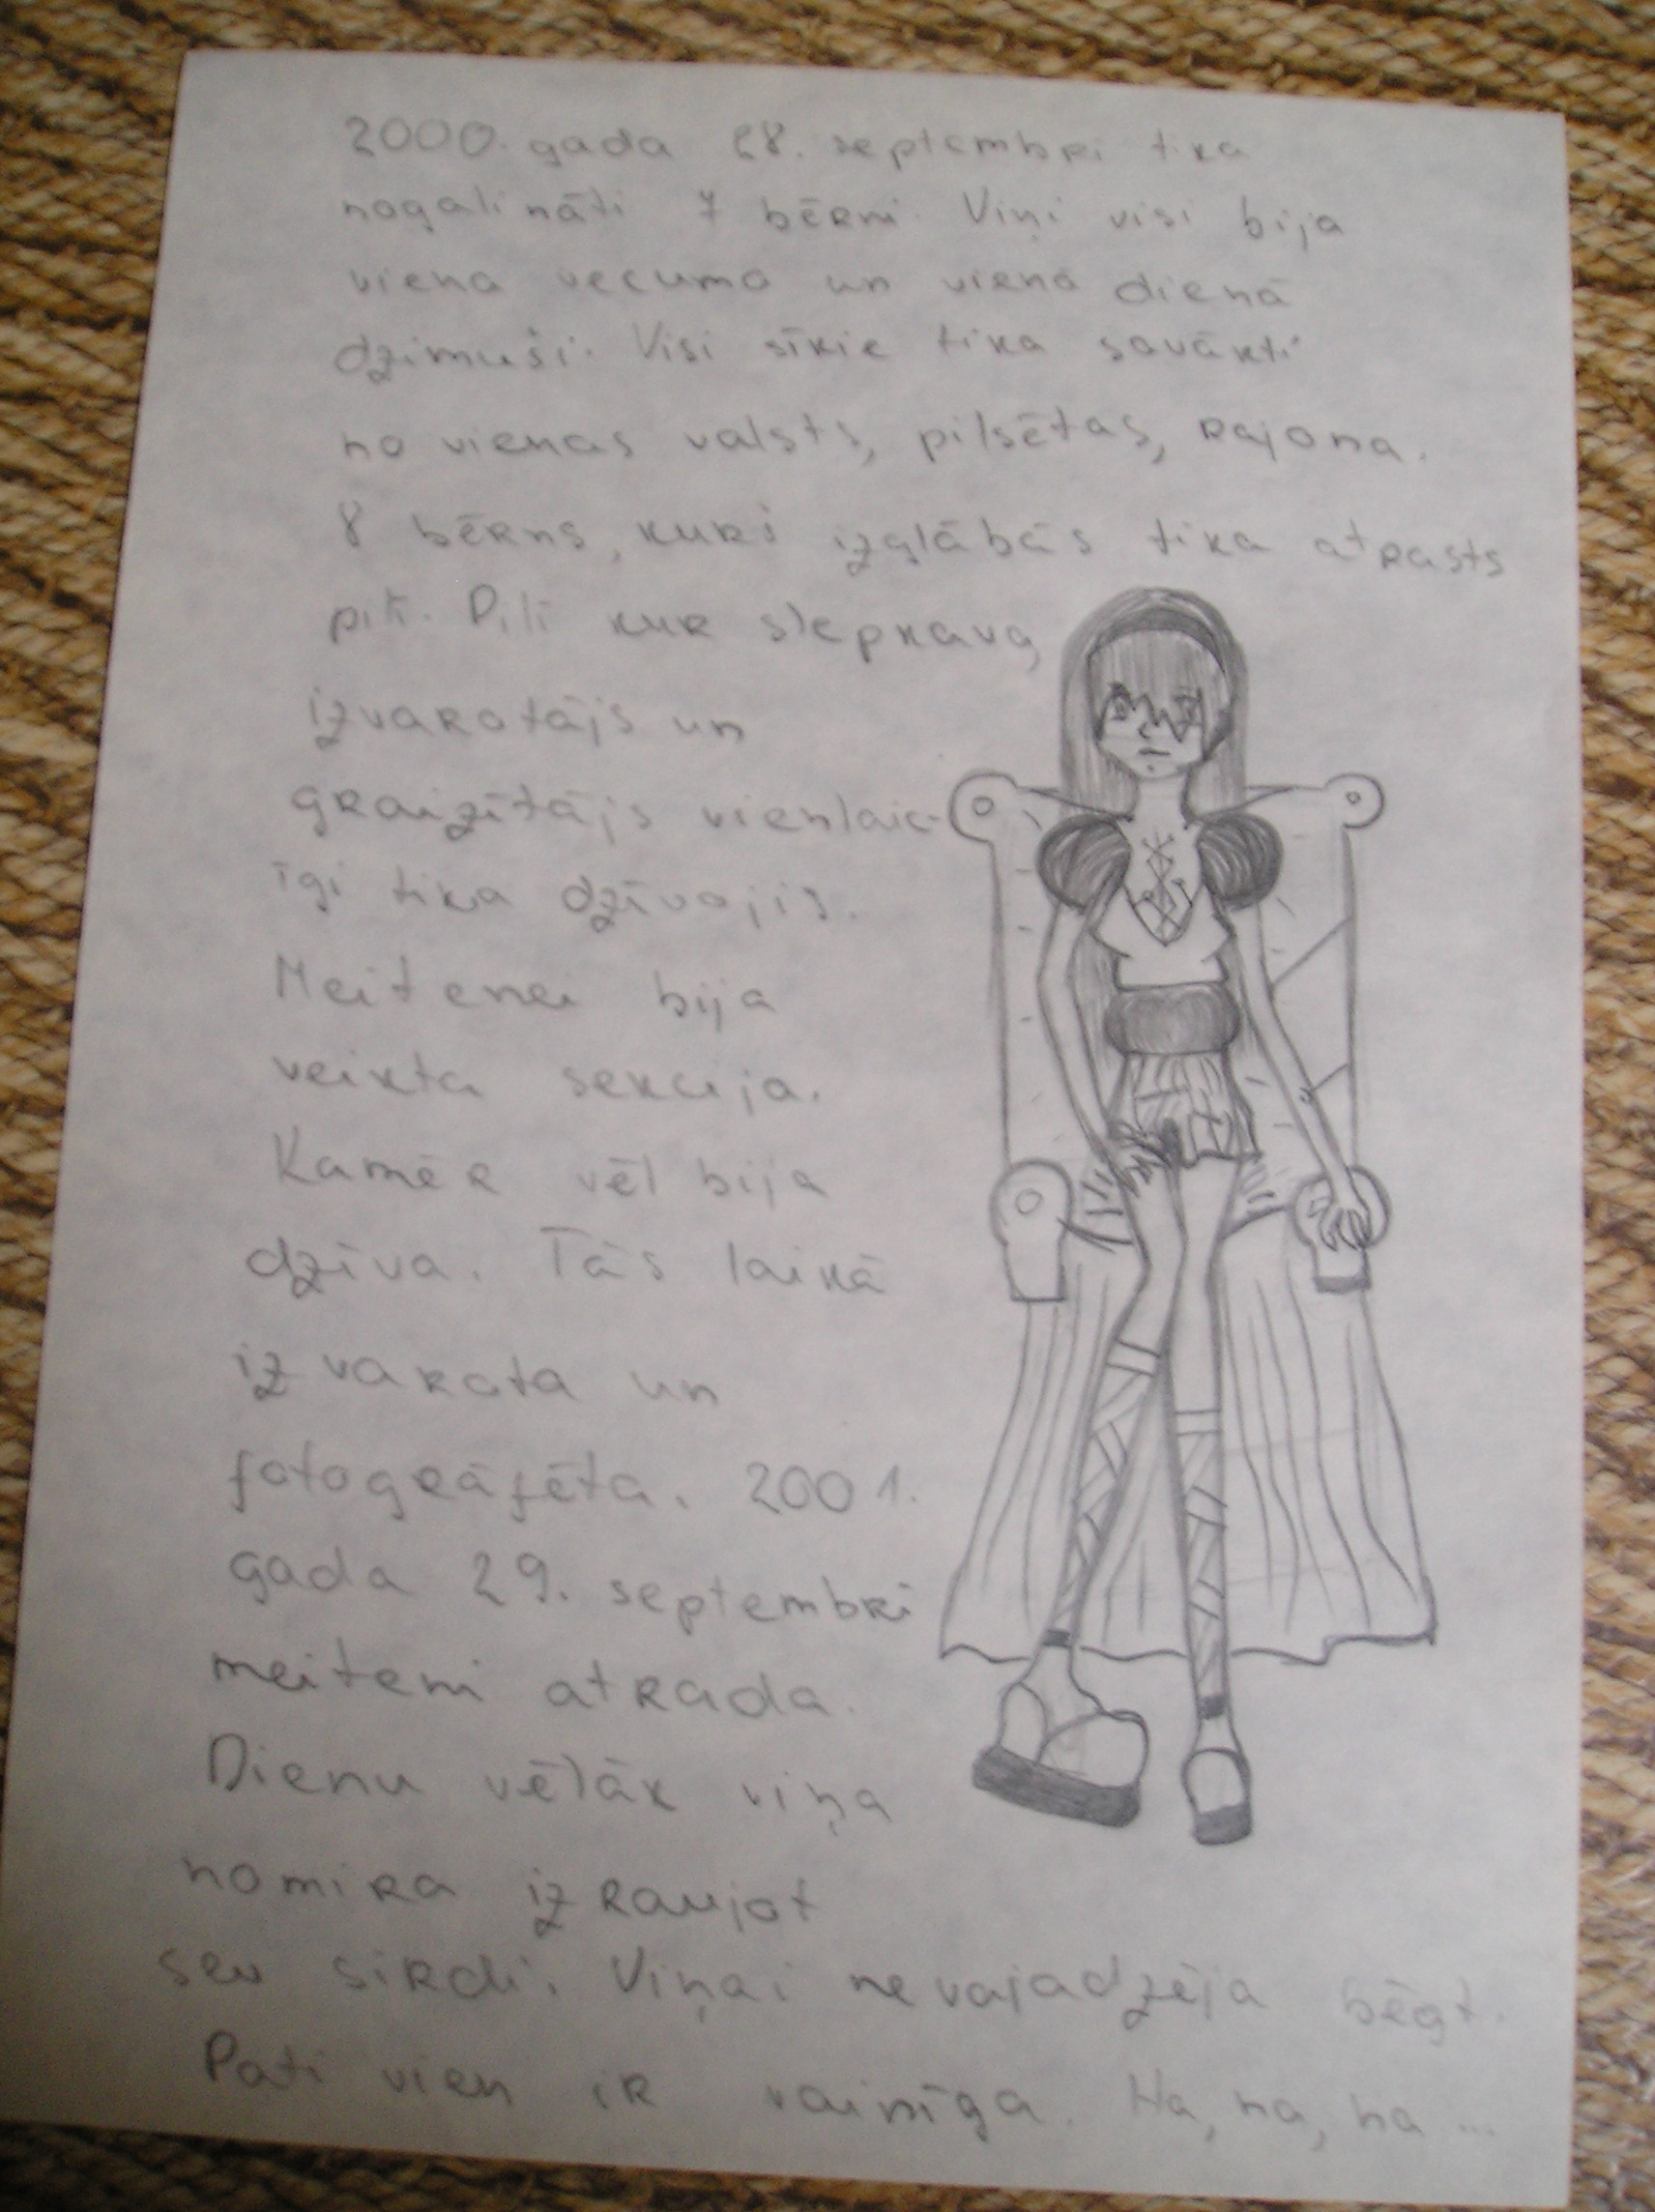 2000. gada 28. septembri tika
nogalināti 7 bērni. Viņi visi bija
viena vecuma un vienā dienā
dzimuši. Visi sīkie tika savākti
no vienas valsts, pilsētas, rajona.
8 bērns, kurš izglābās tika atrasts
Pilī kur slepkava,
izvarotājs un
graizītājs vienlaic-
īgi tika dzīvojis.
Meitenei bija
veikta sekcija.
Kamēr vēl bija
dzīva. Tās laikā
izvarota un
fotogrāfēta. 2001.
gada 29. septembri
meiteni atrada.
Dienu vēlāk viņa
nomira izraujot
sev sirdi. Viņai nevajadzēja bēgt.
Pati vien ir vainīga. Ha, ha, ha ...